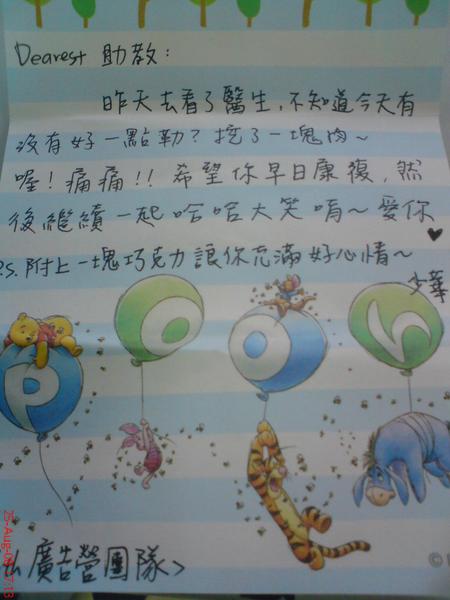 Dearest 助教:
昨天去看了醫生,不知道今天有
沒有好一點勒?挖了一塊肉~
喔!痛痛!!希望你早日康復,然
後繼續一起哈哈大笑唷~愛你♥
P.S. 附上一塊巧克力讓你充滿好心情~
少華
P O O h
廣告營團隊>
©